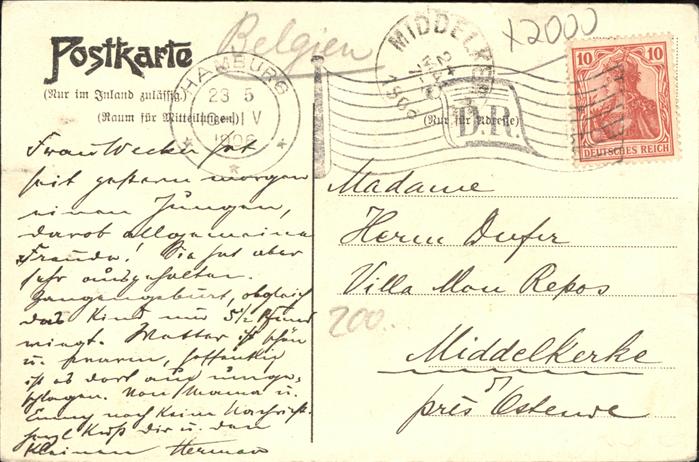 Postkarte
(Nur im Inland zulässig)
(Raum für Mitteilungen)
Belgien
HAMBURG
23 5
IV
1906
MIDDELKERKE
24
1906
x2000
D.R.
(Nur für Adresse)
10 10
DEUTSCHES REICH
Frau Wecker hat
seit gestern morgen
einen Jungen,
darob allgemeine
Freude! Sie hat aber
sehr ausgehalten.
Zangengeburt, obgleich
das Kind nur 5½ Pfund
wiegt. Wetter ist schön
u. warm, hoffentlich
ist es dort auch umge-
schlagen. Von Mama u.
Emmy noch keine Nachricht.
Kuß Dir u. den
Kleinen Herman
Madame
Herm
Villa Mon Repos
Middelkerke
près Ostende
200..